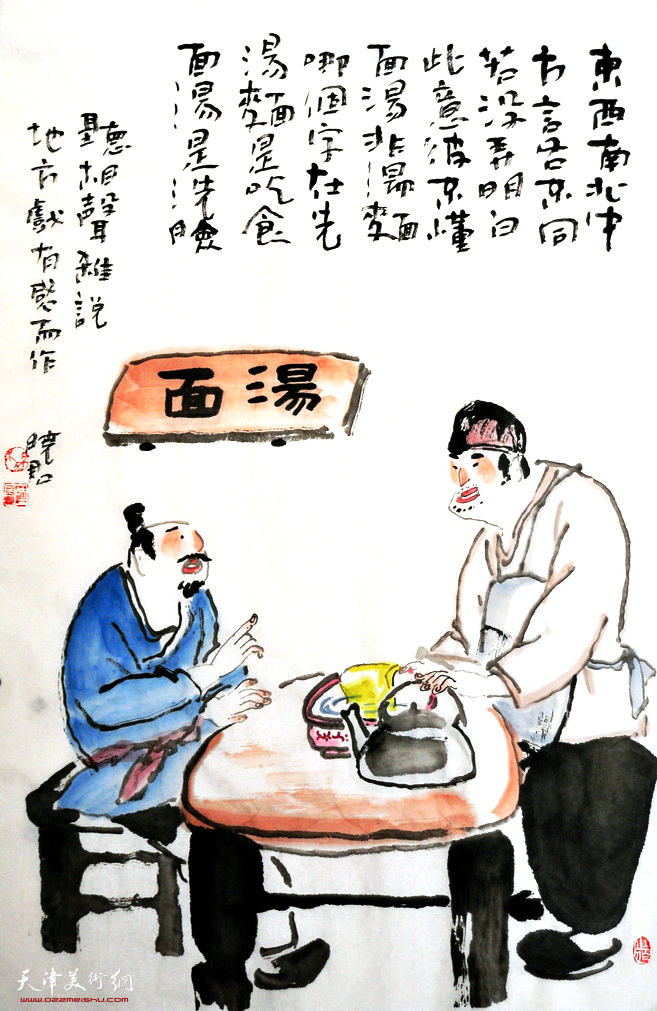 東西南北中
方言各不同
若沒弄明白
此意彼不懂
面湯非湯麵
哪個字在先
湯麵是吃食
面湯是洗臉
聽相聲雜說
地方戲有感而作
曉君
湯面
天津美術網
www.022meishu.com